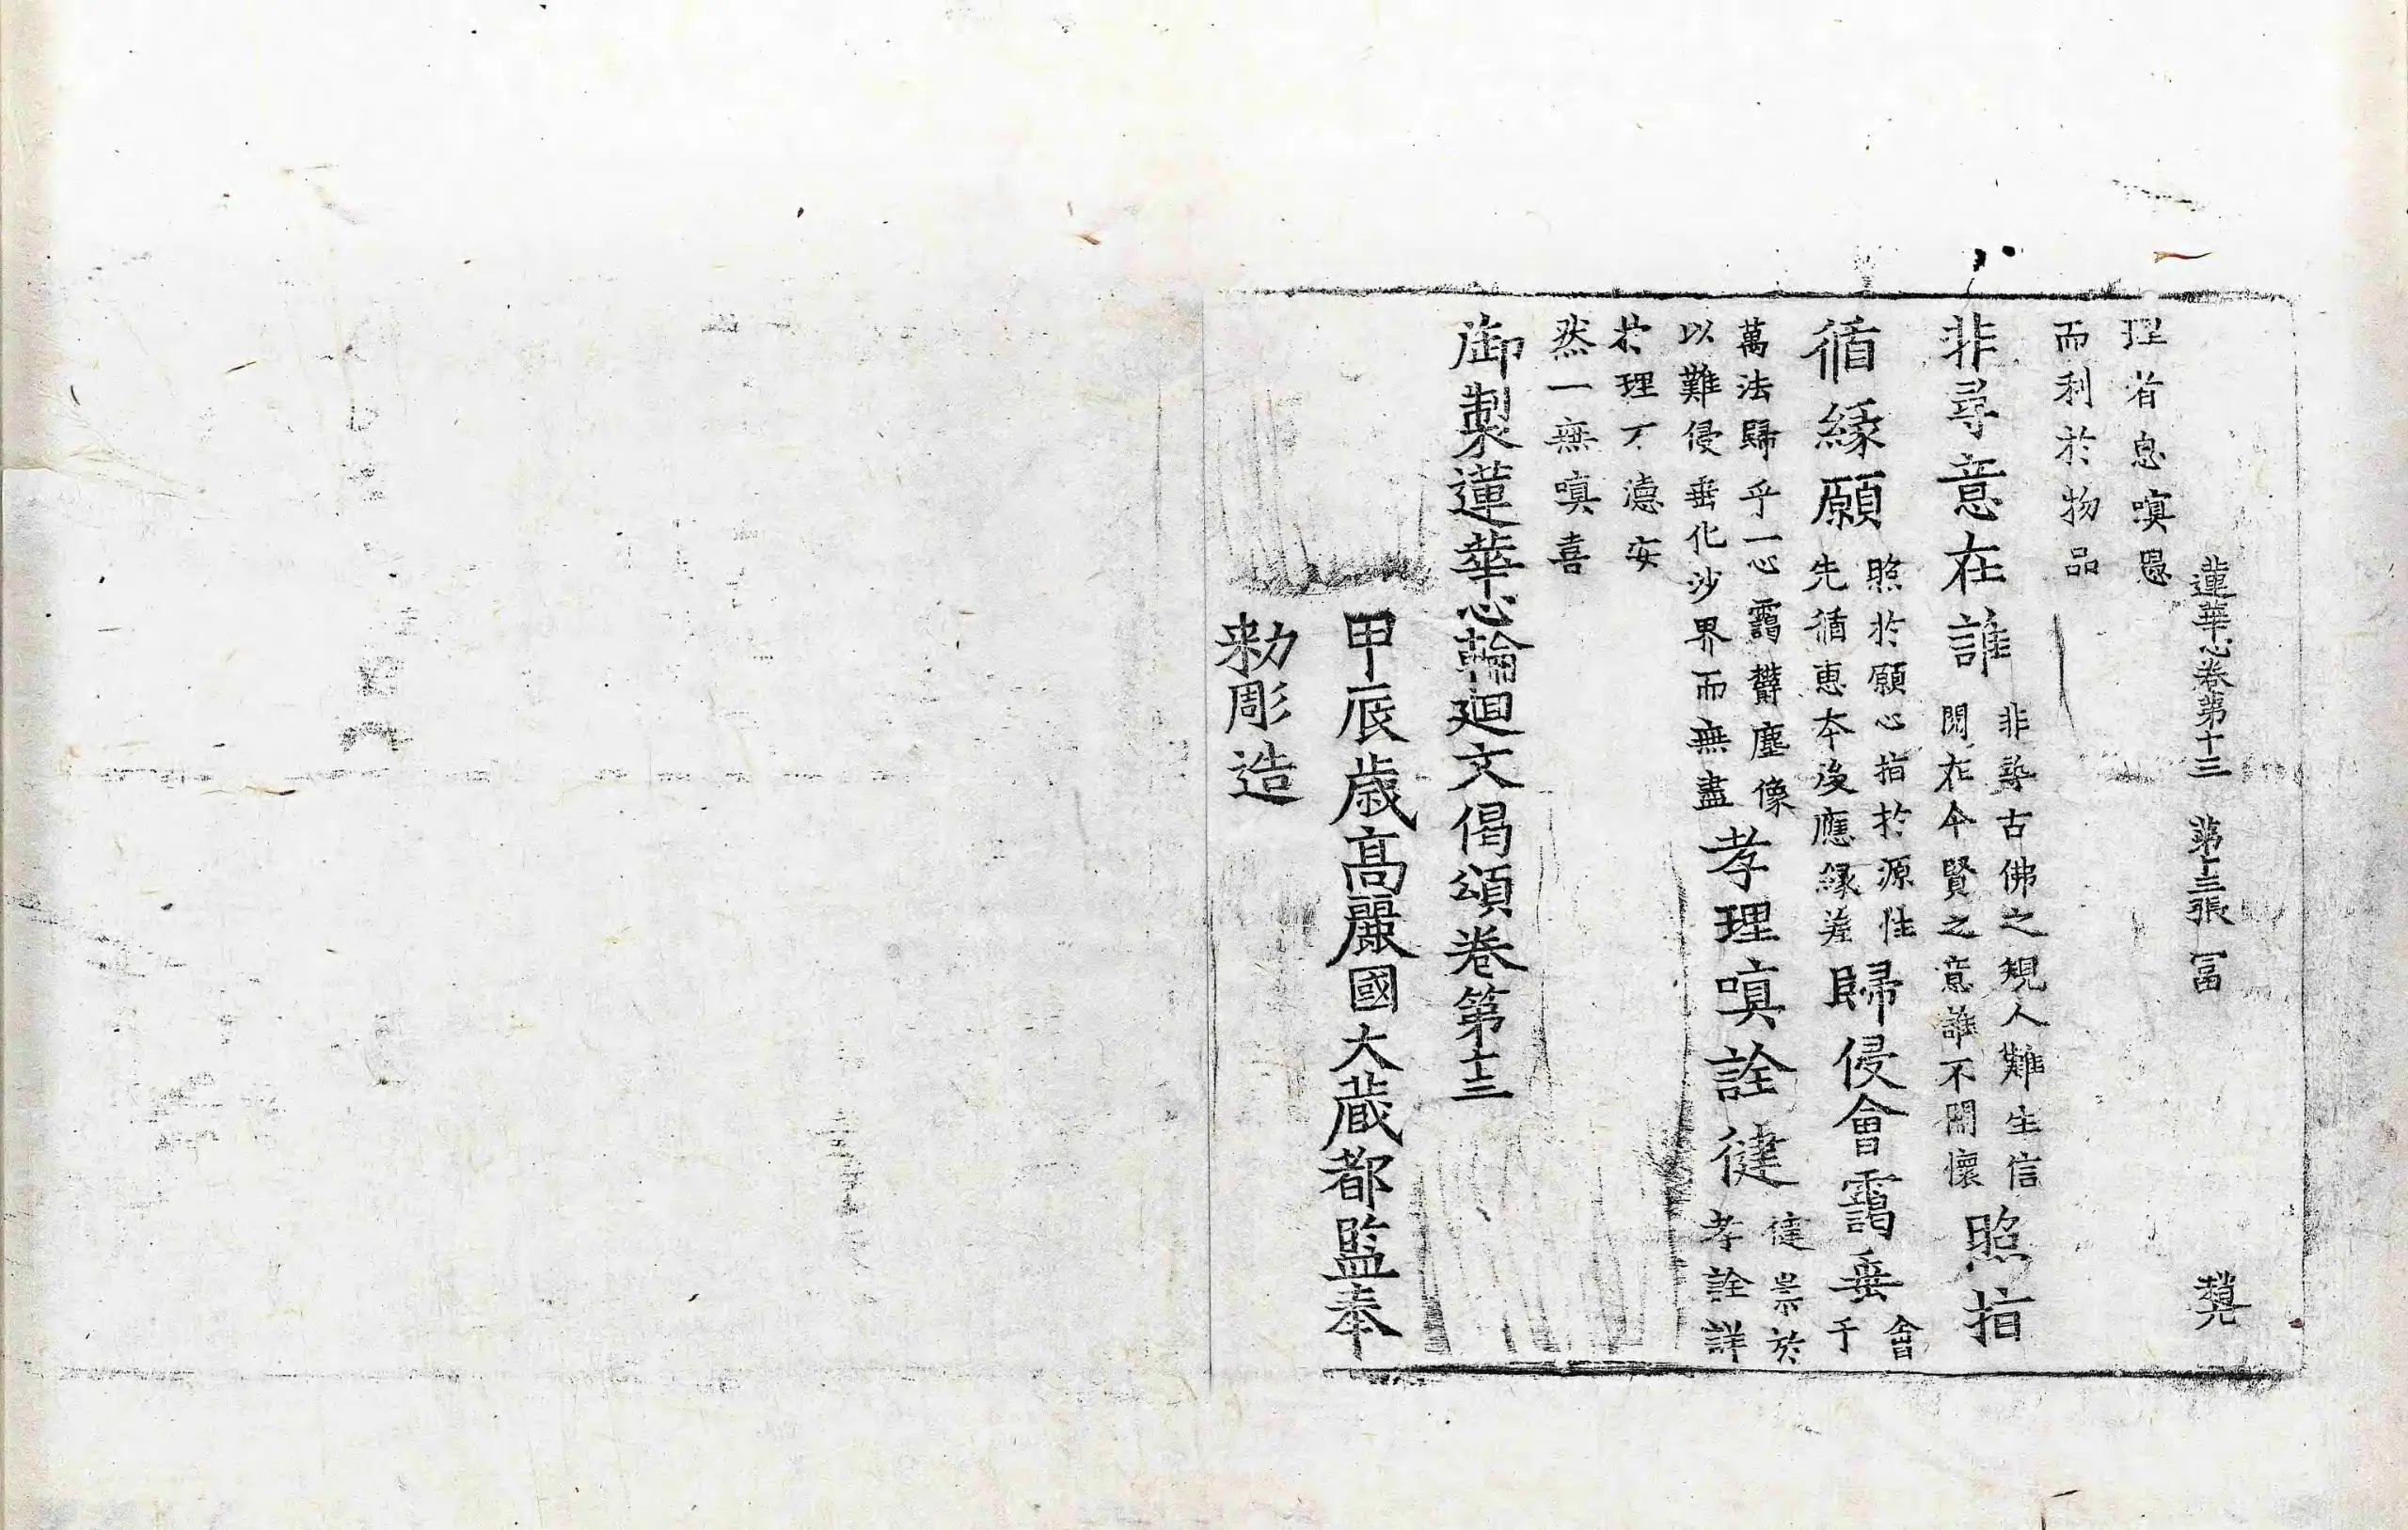 蓮華心卷第十三 第十三張 冨
理者息嗔愚
而利於物品
非尋意在誰 非尋古佛之規人難生信 開在今賢之意誰不開懷 照指
循緣願 照於願心指於源性 先循惠本後應緣差 歸侵會靄垂 會于
萬法歸乎一心靄欝塵像 以難侵垂化沙界而無盡 孝理嗔詮健 健崇於 孝詮詳
於理丁濾安
然一無嗔喜
御製蓮華心輪廻文偈頌卷第十三
甲辰歲高麗國大藏都監奉
勑彫造